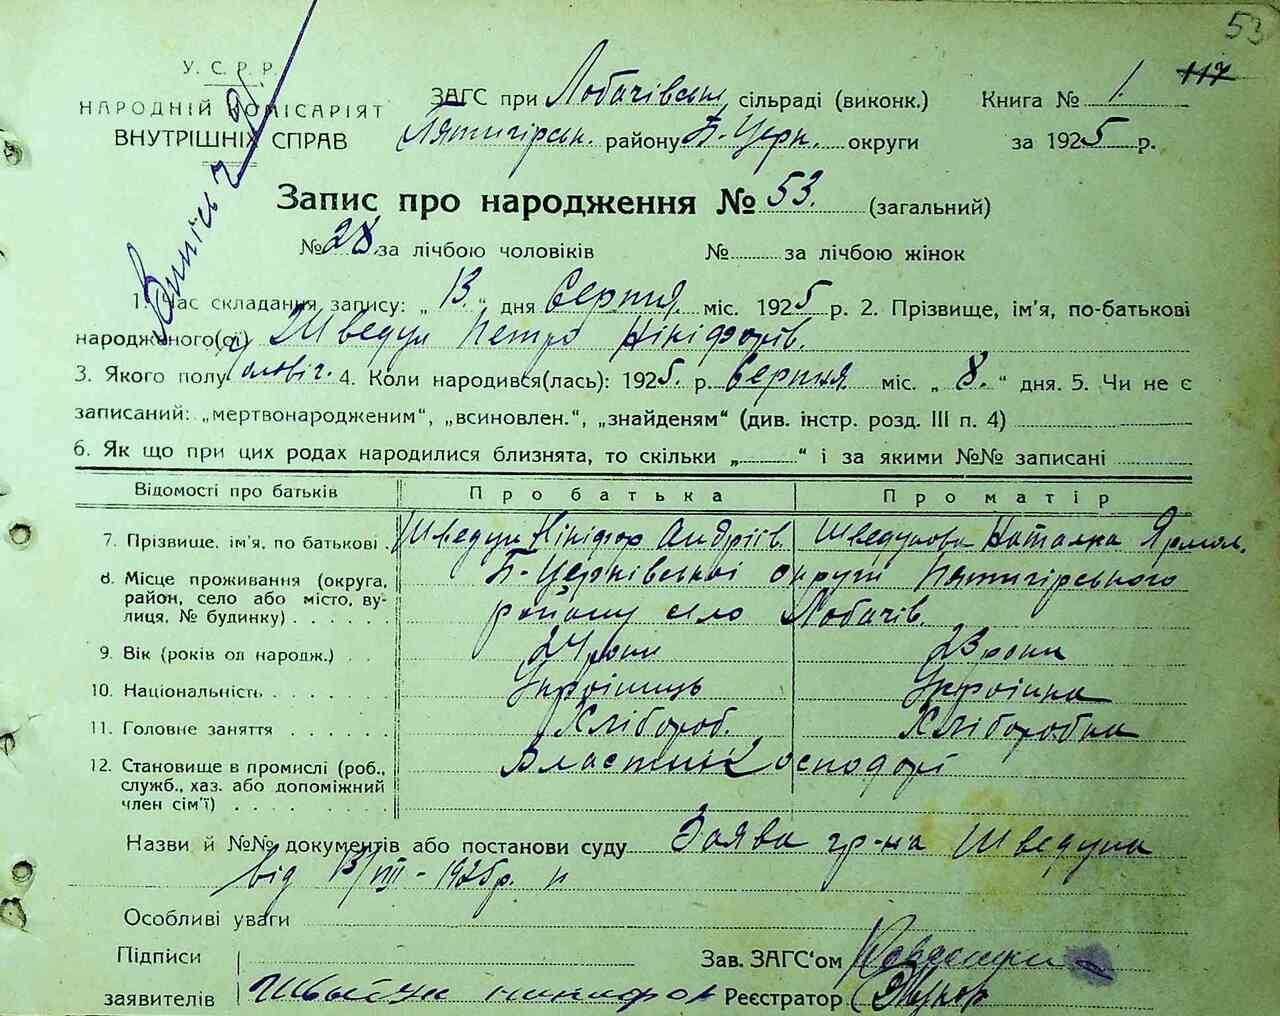 53
У. С. Р. Р.
НАРОДНІЙ КОМІСАРІЯТ
ВНУТРІШНІХ СПРАВ
ЗАГС при Лобачівськ. сільраді (виконк.) Книга № 1. 117
Пятигірськ. району Б.-Церк. округи за 1925 р.
Запис про народження № 53. (загальний)
№ 28. за лічбою чоловіків № за лічбою жінок
1. Час складання запису: „ 13. " дня Серпня. міс. 1925 р. 2. Прізвище, ім'я, по-батькові
народженого(ої) Шведун Петро Нікіфорів.
3. Якого полу чоловіч. 4. Коли народився(лась): 1925. р. Серпня міс. „ 8. " дня. 5. Чи не є
записаний: „мертвонародженим", „всиновлен.", „знайденям" (див. інстр. розд. III п. 4)
6. Як що при цих родах народилися близнята, то скільки „ " і за якими №№ записані
Відомості про батьків Про батька Про матір
7. Прізвище, ім'я, по батькові Шведун Нікіфор Андріїв. Шведунова Наталка Ярмол.
8. Місце проживання (округа, район, село або місто, вулиця, № будинку) Б-Церківської округи Пятигірського
району село Лобачів.
9. Вік (років од народж.) 24 роки 23 роки
10. Національність Українець Українка
11. Головне заняття Хлібороб. Хліборобка
12. Становище в промислі (роб., служб., хаз. або допоміжний член сім'ї) Власник господарі
Назви й №№ документів або постанови суду Заява гр-на Шведуна
від 13/VIII-1925р.
Особливі уваги
Підписи Зав. ЗАГС'ом
заявителів Реєстратор